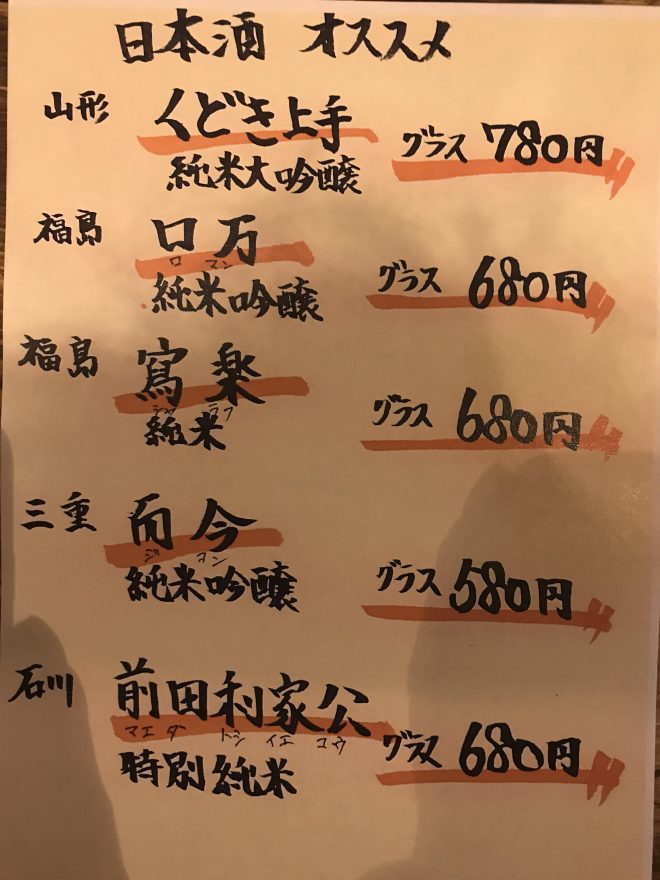 日本酒 オススメ
山形 くどき上手 グラス 780円
純米大吟醸
福島 口万 グラス 680円
ロ マン
純米吟醸
福島 寫楽 グラス 680円
シャ ラク
純米
三重 而今 グラス 580円
ジ コン
純米吟醸
石川 前田利家公 グラス 680円
マエ ダ トシ イエ コウ
特別純米